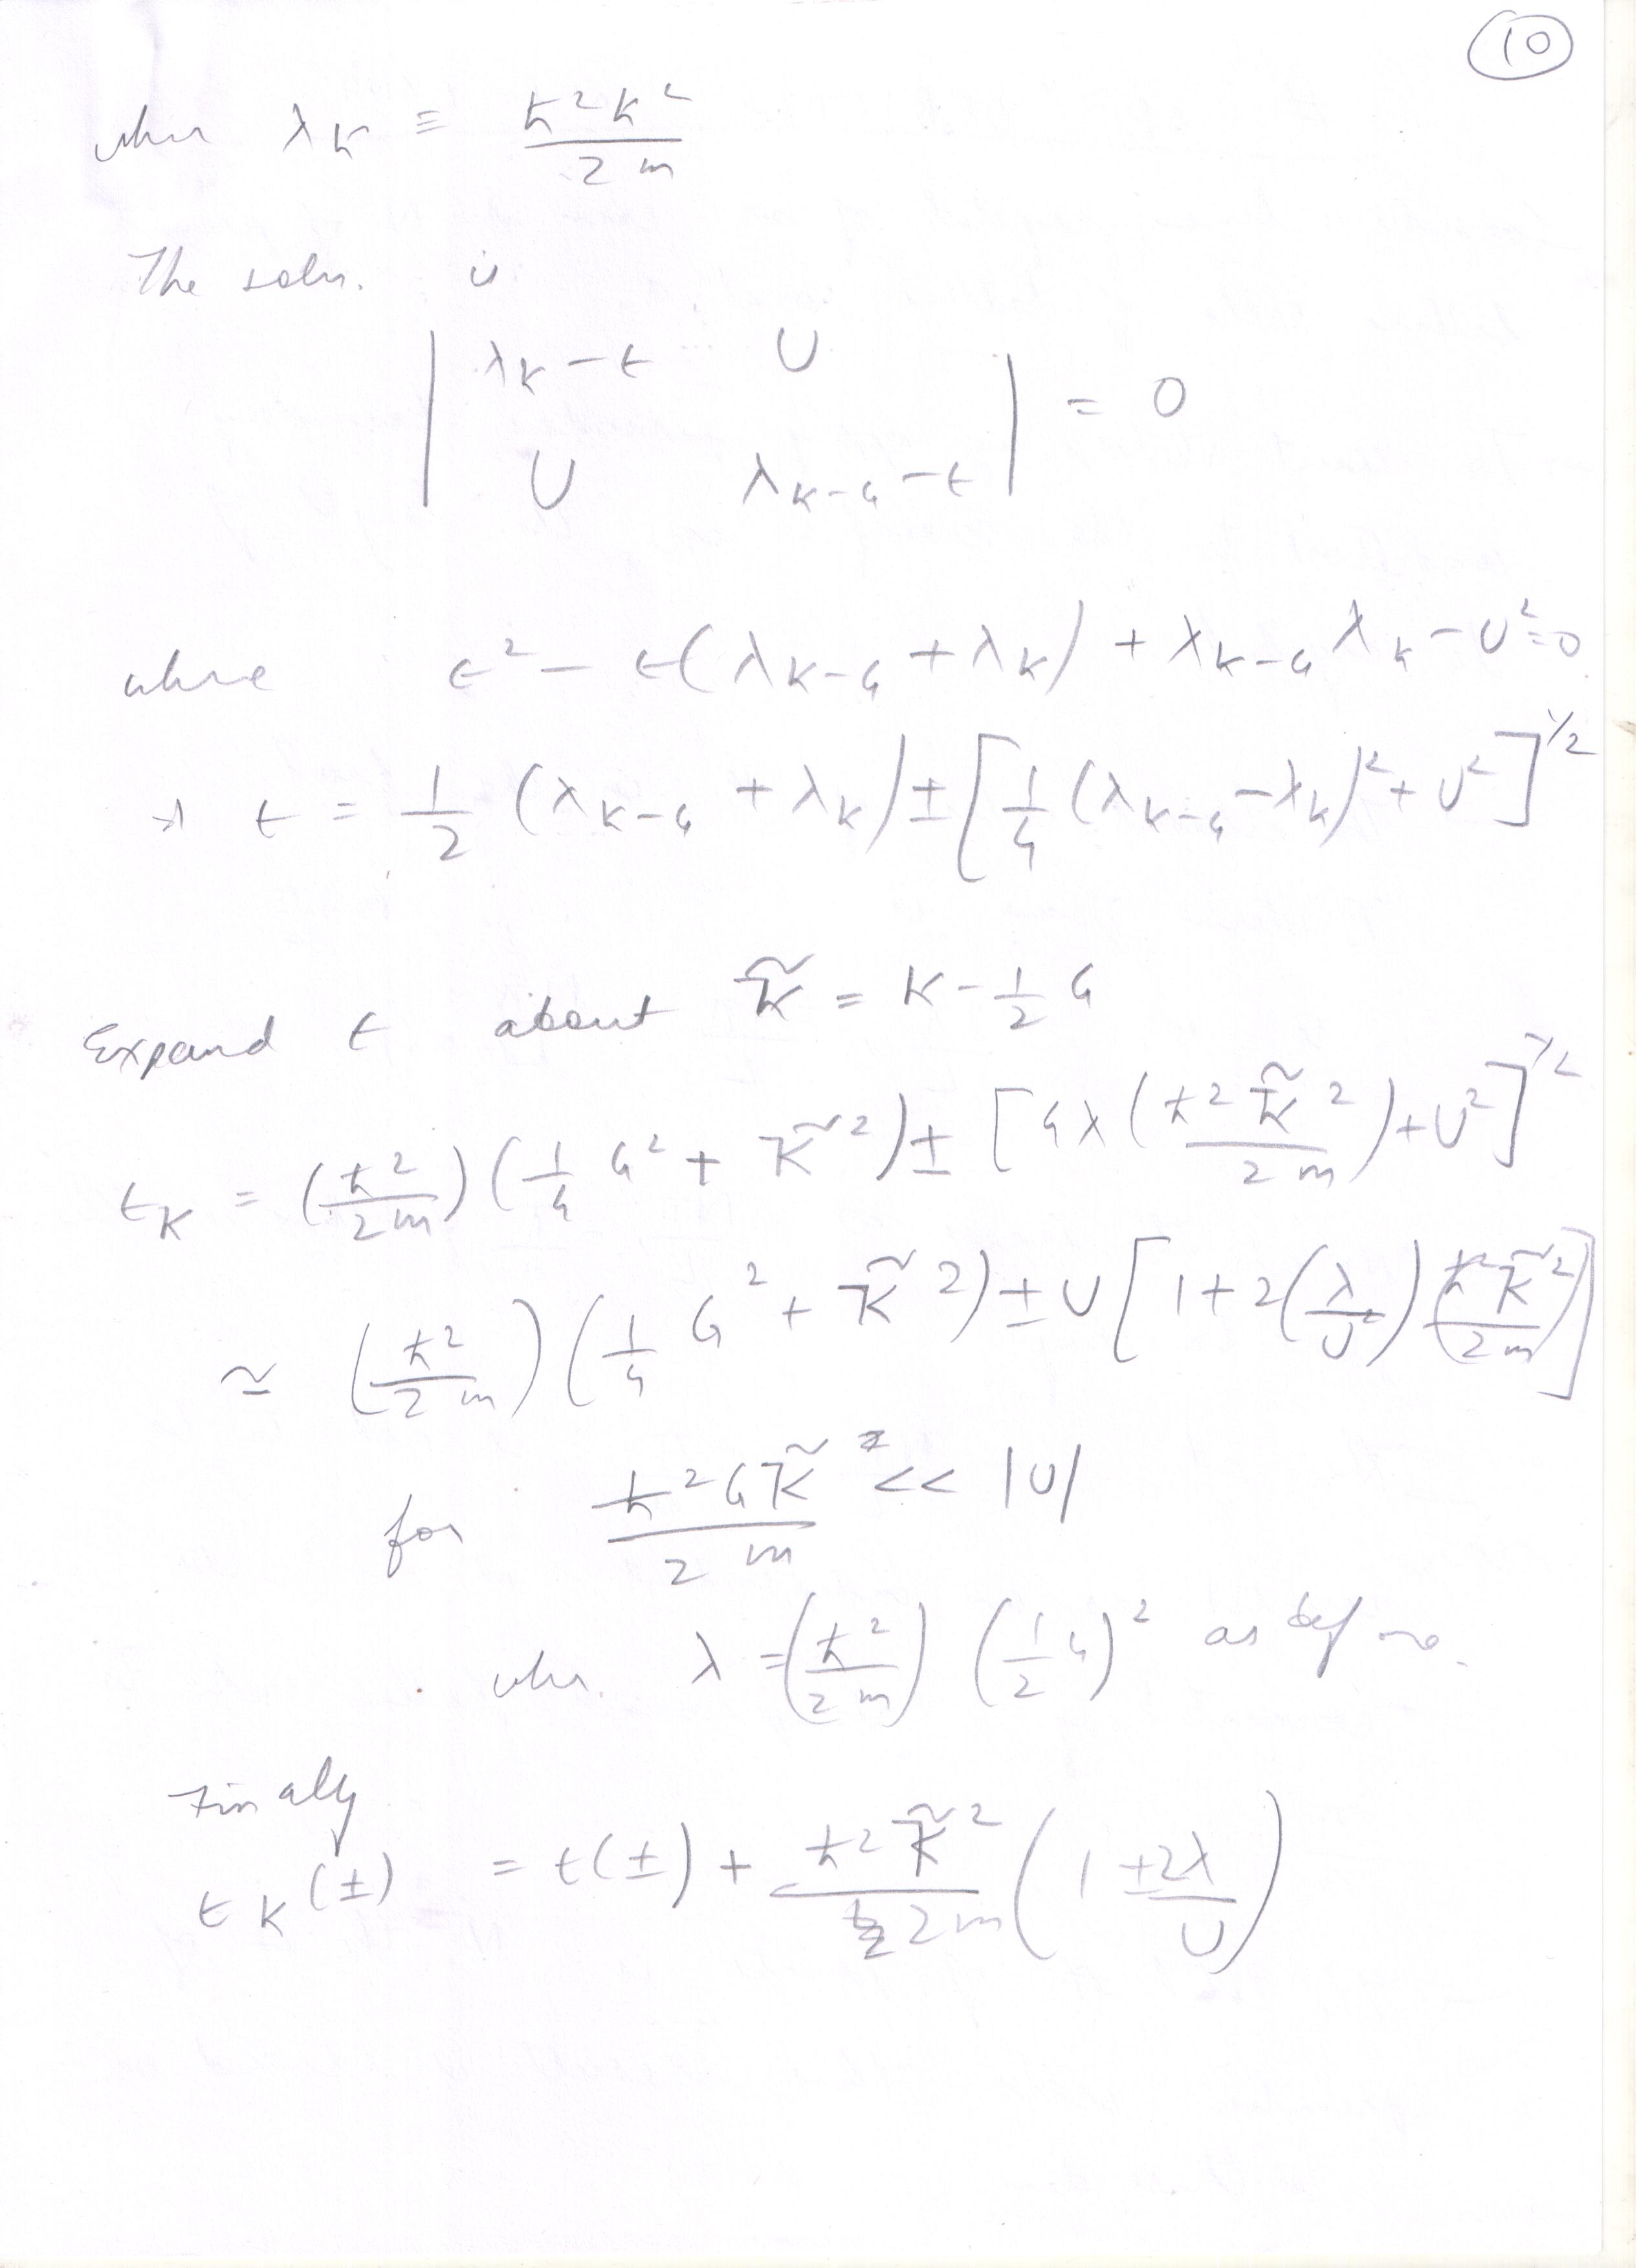 10
where λ_K ≡ ħ²K² / 2m
The soln. is
| λ_K − ε    U |
| U    λ_{K−G} − ε | = 0
where ε² − ε(λ_{K−G} + λ_K) + λ_{K−G} λ_K − U² = 0
→ ε = 1/2 (λ_{K−G} + λ_K) ± [1/4 (λ_{K−G} − λ_K)² + U²]^{1/2}
Expand ε about K̃ = K − 1/2 G
ε_K = (ħ²/2m) (1/4 G² + K̃²) ± [4λ (ħ² K̃² / 2m) + U²]^{1/2}
≃ (ħ²/2m) (1/4 G² + K̃²) ± U [1 + 2(λ/U²) (ħ² K̃² / 2m)]
for ħ² G K̃ / 2m << |U|
whr. λ = (ħ²/2m) (1/2 G)² as before.
Finally
ε_K(±) = ε(±) + ħ² K̃² / 2m (1 ± 2λ/U)